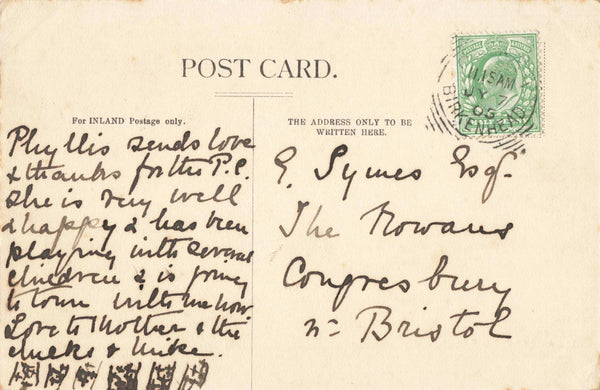 POST CARD.
For INLAND Postage only.
THE ADDRESS ONLY TO BE
WRITTEN HERE.
Phyllis sends love
& thanks for the P.C.
she is very well
& happy & has been
playing with several
children & is going
to town with me now
Love to Mother & the
chicks & Mike.
G. Symes Esq.
The Rowans
Congresbury
nr Bristol
POSTAGE
11.15AM
JY 7
05
BIRKENHEAD